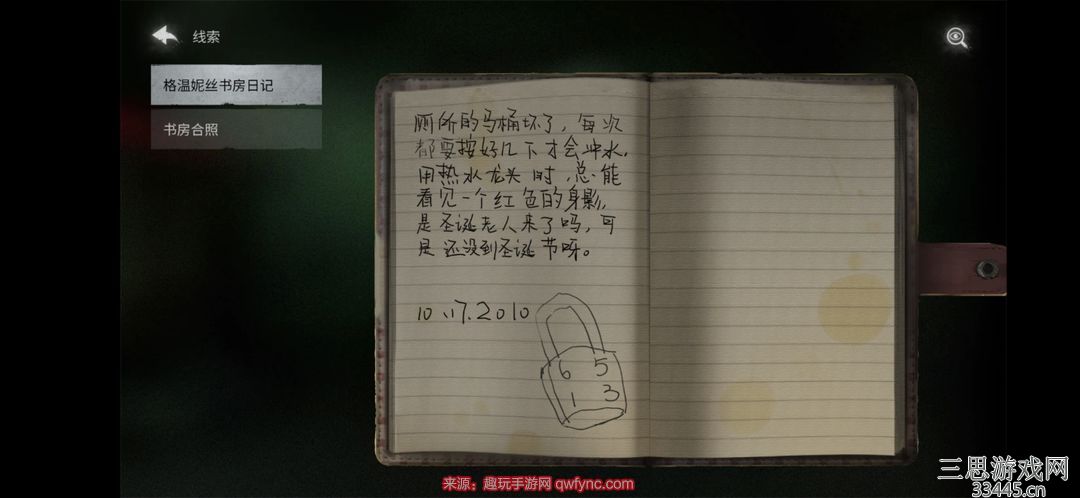 线索
格温妮丝书房日记
书房合照
厕所的马桶坏了，每次
都要按好几下才会冲水，
用热水龙头时，总能
看见一个红色的身影，
是圣诞老人来了吗，可
是还没到圣诞节呀。
10.17.2010
6 5
1 3
来源：趣玩手游网 qwfync.com
三思游戏网
33445.cn